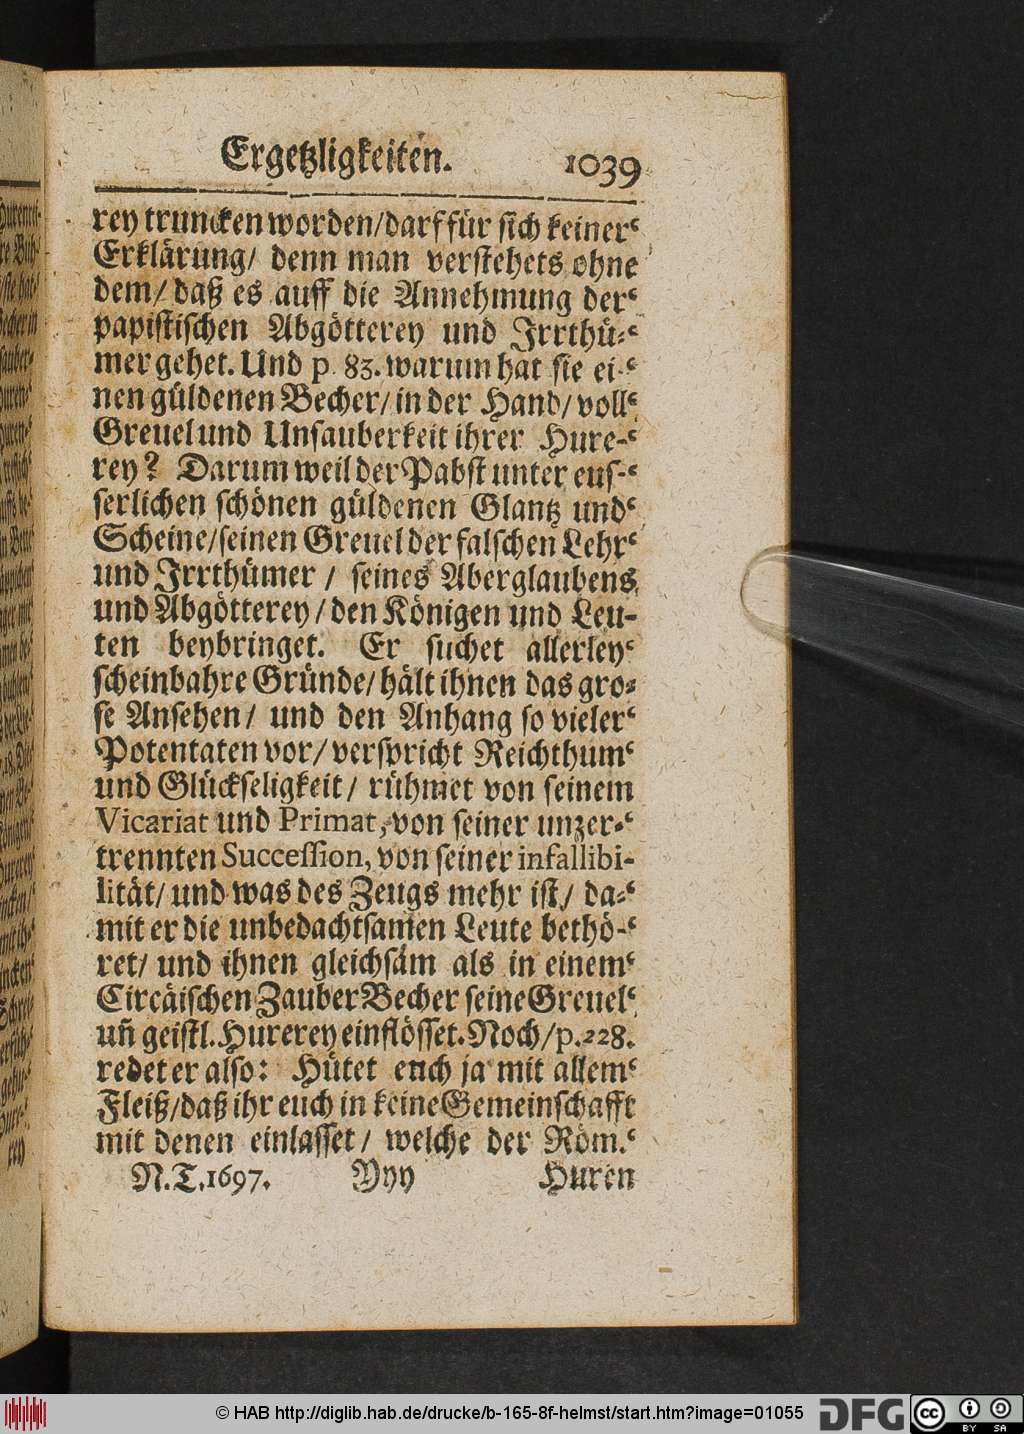 Ergetzligkeiten. 1039
rey truncken worden/darf für sich keiner‘
Erklärung/ denn man verstehets ohne
dem/ daß es auff die Annehmung der‘
papistischen Abgötterey und Irrthü-‘
mer gehet. Und p. 83. warum hat sie ei-‘
nen güldenen Becher/ in der Hand/ voll‘
Greuel und Unsauberkeit ihrer Hure-‘
rey? Darum weil der Pabst unter eus-‘
serlichen schönen güldenen Glantz und‘
Scheine/seinen Greuel der falschen Lehr‘
und Irrthümer / seines Aberglaubens,
und Abgötterey/ den Königen und Leu-
ten beybringet. Er suchet allerley‘
scheinbahre Gründe/ hält ihnen das gro-
se Ansehen/ und den Anhang so vieler‘
Potentaten vor/ verspricht Reichthum‘
und Glückseligkeit/ rühmet von seinem
Vicariat und Primat, von seiner unzer-‘
trennten Succession, von seiner infallibi-
lität/ und was des Zeugs mehr ist/ da-‘
mit er die unbedachtsamen Leute bethö-‘
ret/ und ihnen gleichsam als in einem‘
Circäischen Zauber Becher seine Greuel‘
uñ geistl. Hurerey einflösset. Noch/ p. 228.
redet er also: Hütet euch ja mit allem‘
Fleiß/daß ihr euch in keine Gemeinschafft
mit denen einlasset/ welche der Röm.‘
N.T. 1697. Yyy Huren
© HAB http://diglib.hab.de/drucke/b-165-8f-helmst/start.htm?image=01055
DFG cc BY SA